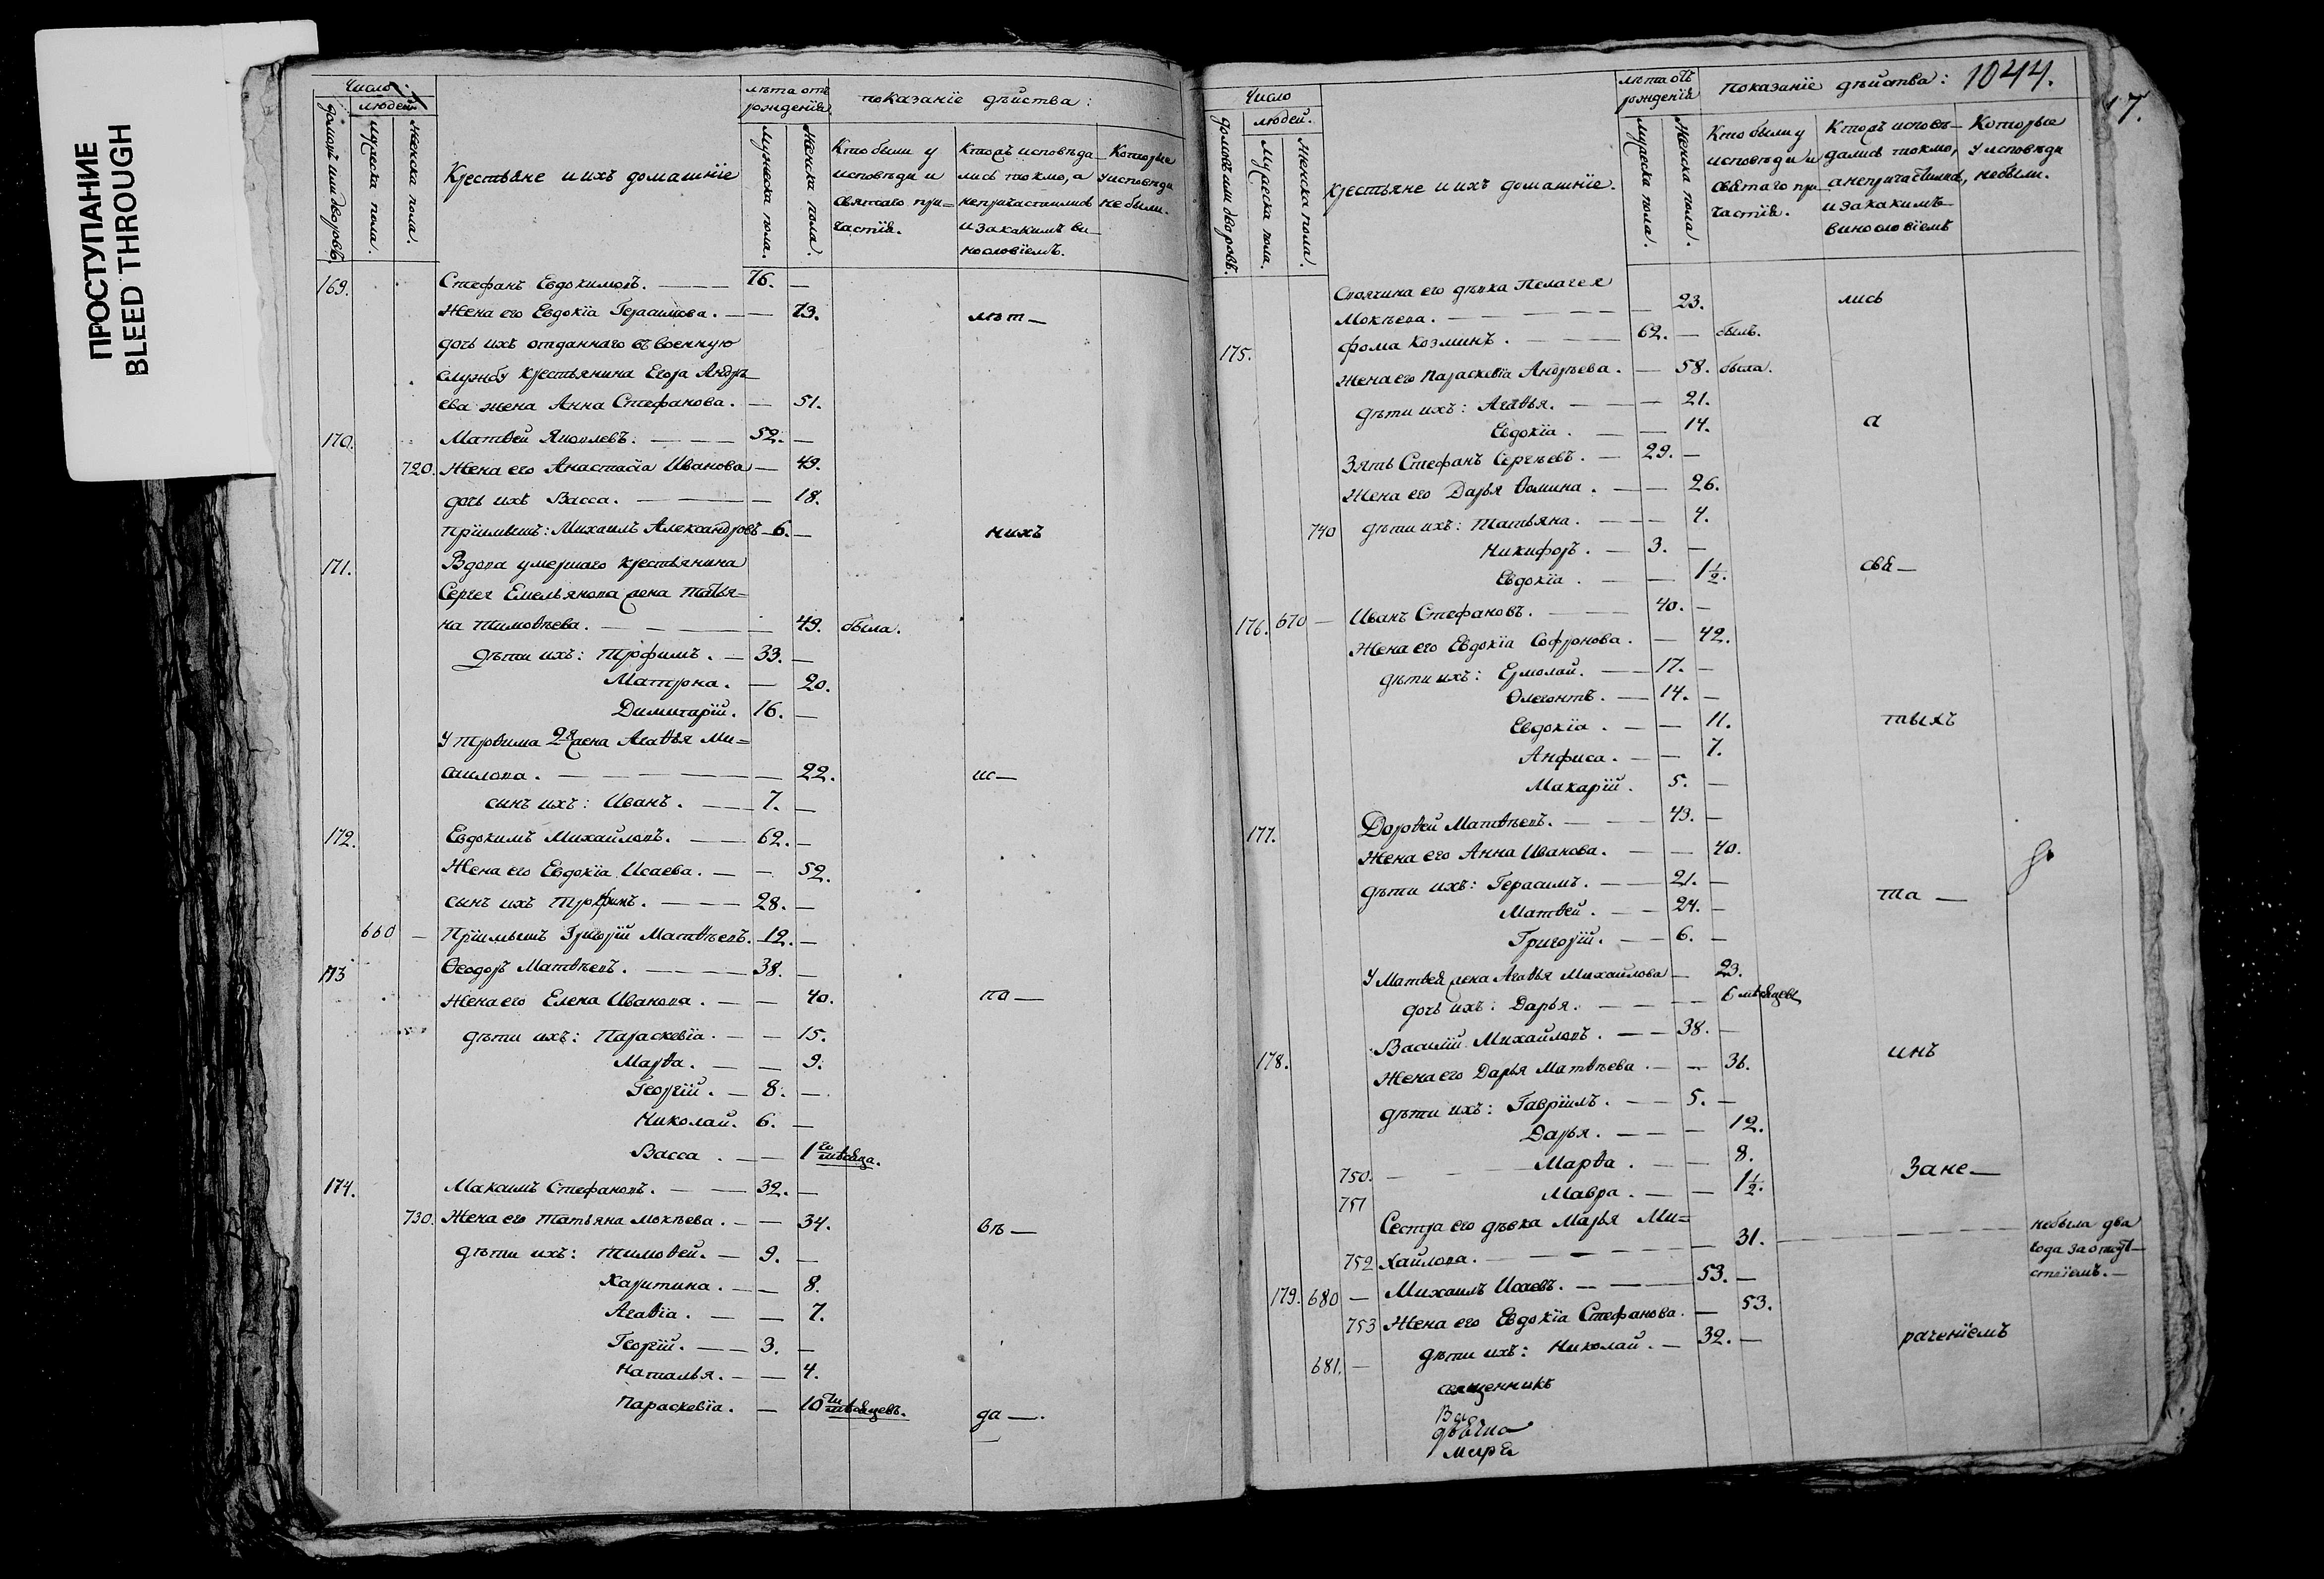 ПРОСТУПАНИЕ
BLEED THROUGH
Число:
людей
домовъ или дворовъ.
мужеска пола.
женска пола.
Крестьяне и ихъ домашнїе
лѣта отъ рожденїя
мужеска пола.
женска пола.
показанїе дѣйства:
Кто были у исповѣди и святаго при=частїя.
Кто исповѣдались токмо, а непричастились и за какимъ винословїемъ.
Которые у исповѣди не были.
169. Стефанъ Евдокимовъ. 76. —
Жена его Евдокїа Герасимова. — 73. лѣт—
дочь ихъ отданнаго въ военную
службу крестьянина Егора Андрѣ—
ева жена Анна Стефанова. — 51.
170. Матѳей Яковлевъ. 52. —
720. Жена его Анастасїа Иванова — 49.
дочь ихъ Васса. — 18.
Прїимышъ: Михаилъ Александровъ 6. — нихъ
171. Вдова умершаго крестьянина
Сергея Емельянова жена Татья=
на Тимоѳѣева. — 49. была.
дѣти ихъ: Трофимъ. — 33. —
Матрона. — 20.
Димитрїй. 16. —
У Трѳима жена Агаѳья Ми=
саилова. — 22. ис—
сынъ ихъ: Иванъ. 7. —
172. Евдокимъ Михайловъ. — 62. —
Жена его Евдокїа Исаева. — 52.
сынъ ихъ Трофимъ. — 28. —
660 — Прїимышъ Григорїй Матѳѣевъ. 12. —
173 Ѳеодоръ Матѳѣевъ. — 38. —
Жена его Елена Иванова. — 40. по—
дѣти ихъ: Параскевїа. — 15.
Марѳа. — 9.
Георгїй. — 8. —
Николай. 6. —
Васса. — 1го мѣсяца.
174. Макаимъ Стефановъ. — 32. —
730. Жена его Татьяна Мокѣева. — 34. вѣ—
дѣти ихъ: Тимоѳей. — 9. —
Харитина. — 8.
Агаѳїа. — 7.
Георгїй. — 3. —
Наталья. — 4.
Параскевїа. — 10ти мѣсяцевъ. да—.
1044.
17.
Число
людей.
домовъ или дворовъ.
мужеска пола.
женска пола.
крестьяне и ихъ домашнїе.
лѣта отъ рожденїя
мужеска пола.
женска пола.
показанїе дѣйства:
Кто были у исповѣди и святаго при—частїя.
Кто исповѣ—дались токмо, а непричастились, и за какимъ винословїемъ
Которые у исповѣди небыли.
его дѣвка Пелагея
Мокѣева. — 23. лись
175. Фома Козминъ. — 62. — былъ.
Жена его Параскевїа Андрѣева. — 58. была.
дѣти ихъ: Агаѳья. — 21.
Евдокїа. — 14. а
Зять Стефанъ Сергѣевъ. — 29. —
Жена его Дарья Ѳомина. — 26.
740 дѣти ихъ: Татьяна. — 4.
Никифоръ. — 3. —
Евдокїа. — 1½. свя—
176. 670 — Иванъ Стефановъ. — 40. —
Жена его Евдокїа Софронова. — 42.
дѣти ихъ: Ермолай. — 17. —
Ѳлегонтъ. — 14. —
Евдокїа. — 11. тыхъ
Анфиса. — 7.
Макарїй. 5. —
177. Дороѳей Матѳѣевъ. — 43. —
Жена его Анна Иванова. — 40.
дѣти ихъ: Герасимъ. — 21. —
Матѳей. — 24. — та—
Григорїй. — 6. —
У Матѳея жена Агаѳья Михайлова — 23.
дочь ихъ: Дарья. — 6 мѣсяцевъ
178. Василїй Михайловъ. — 38. — инъ
Жена его Дарья Матѳѣева. — 36.
дѣти ихъ: Гаврїилъ. — 5. —
Дарья. — 12.
750. — Марѳа. — 8. Зане—
751 Мавра. — 1½.
Сестра его дѣвка Марья Ми=
752 хайлова. — 31. — небыла два года за отсут—ствїемъ.—
179. 680 — Михаилъ Исаевъ. — 53. —
753 Жена его Евдокїа Стефанова. — 53.
681. — дѣти ихъ: Николай. — 32. — раченїемъ
священникъ